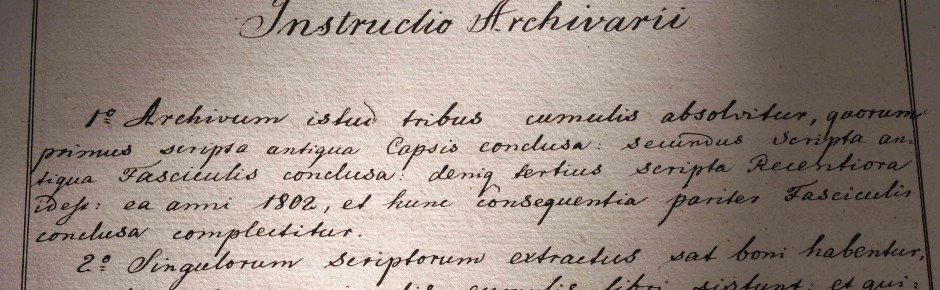 Instructio Archivarii
1º Archivum istud tribus cumulis absolvitur, quorum
primus scripta antiqua Capsis conclusa: secundus Scripta an-
tiqua Fasciculis conclusa: deniq tertius scripta Recentiora
idest: ea anni 1802, et hunc consequentia pariter Fasciculis
conclusa complectitur.
2º Singulorum scriptorum extractus sat boni habentur,
cumulis libri sistunt: et qui-